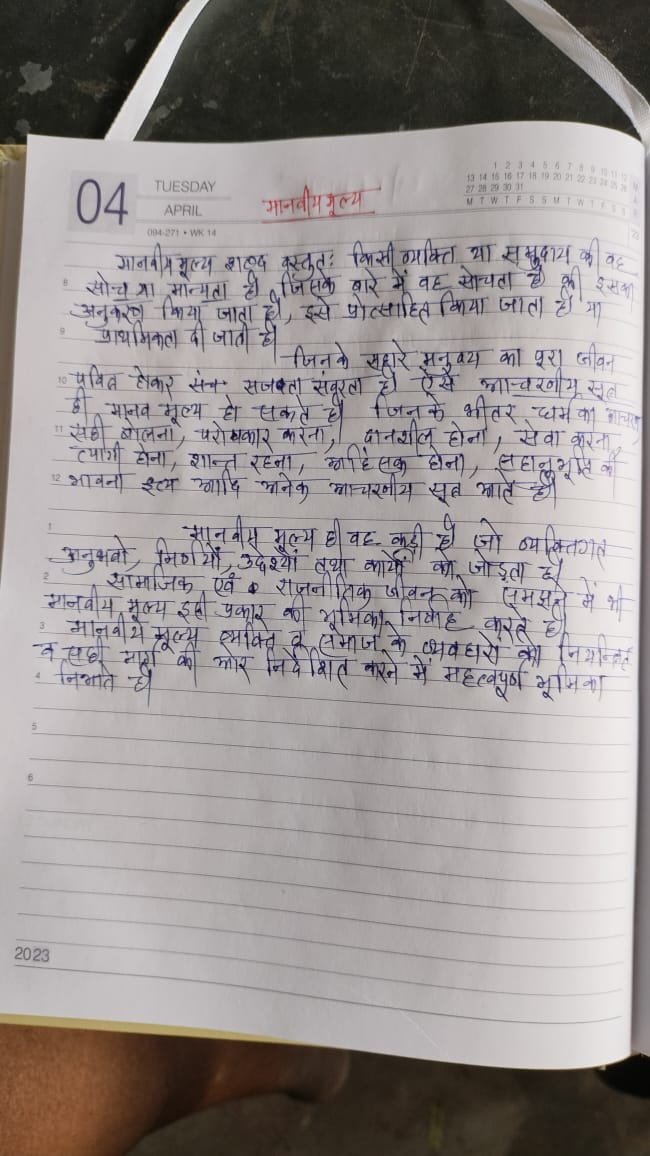 04
TUESDAY
APRIL
094-271 • WK 14
1 2 3 4 5 6 7 8 9 10 11 12
13 14 15 16 17 18 19 20 21 22 23 24 25 26
27 28 29 30 31
M T W T F S S M T W T F S S
मानवीय मूल्य
मानवीय मूल्य शब्द वस्तुतः किसी व्यक्ति या समुदाय की वह
8 सोच या मान्यता है जिसके बारे में वह सोचता है की इसका
अनुकरण किया जाता है, इसे प्रोत्साहित किया जाता है या
9 प्राथमिकता दी जाती है।
जिनके सहारे मनुष्य का पूरा जीवन
10 पवित होकर सजता संवरता है। ऐसे आचरणीय सूत
ही मानव मूल्य हो सकते है। जिनके भीतर धर्म का आचरण
11 सही बोलना, परोपकार करना, दानशील होना, सेवा करना,
त्यागी होना, शान्त रहना, अहिंसक होना, सहानुभूति की
12 भावना आदि अनेक आचरणीय सूत आते है।
1 मानवीय मूल्य ही वह कड़ी है जो व्यक्तिगत
अनुभवो, निर्णयों, उदेश्यों तथा कार्यों को जोड़ता है।
2 सामाजिक एवं राजनीतिक जीवन को समझने में भी
मानवीय मूल्य इसी प्रकार की भूमिका निर्वाह करते है।
3 मानवीय मूल्य व्यक्ति व समाज के व्यवहारो को नियन्त्रित
व सही मार्ग की ओर निर्देशित करने में महत्वपूर्ण भूमिका
4 निभाते है।
5
6
2023